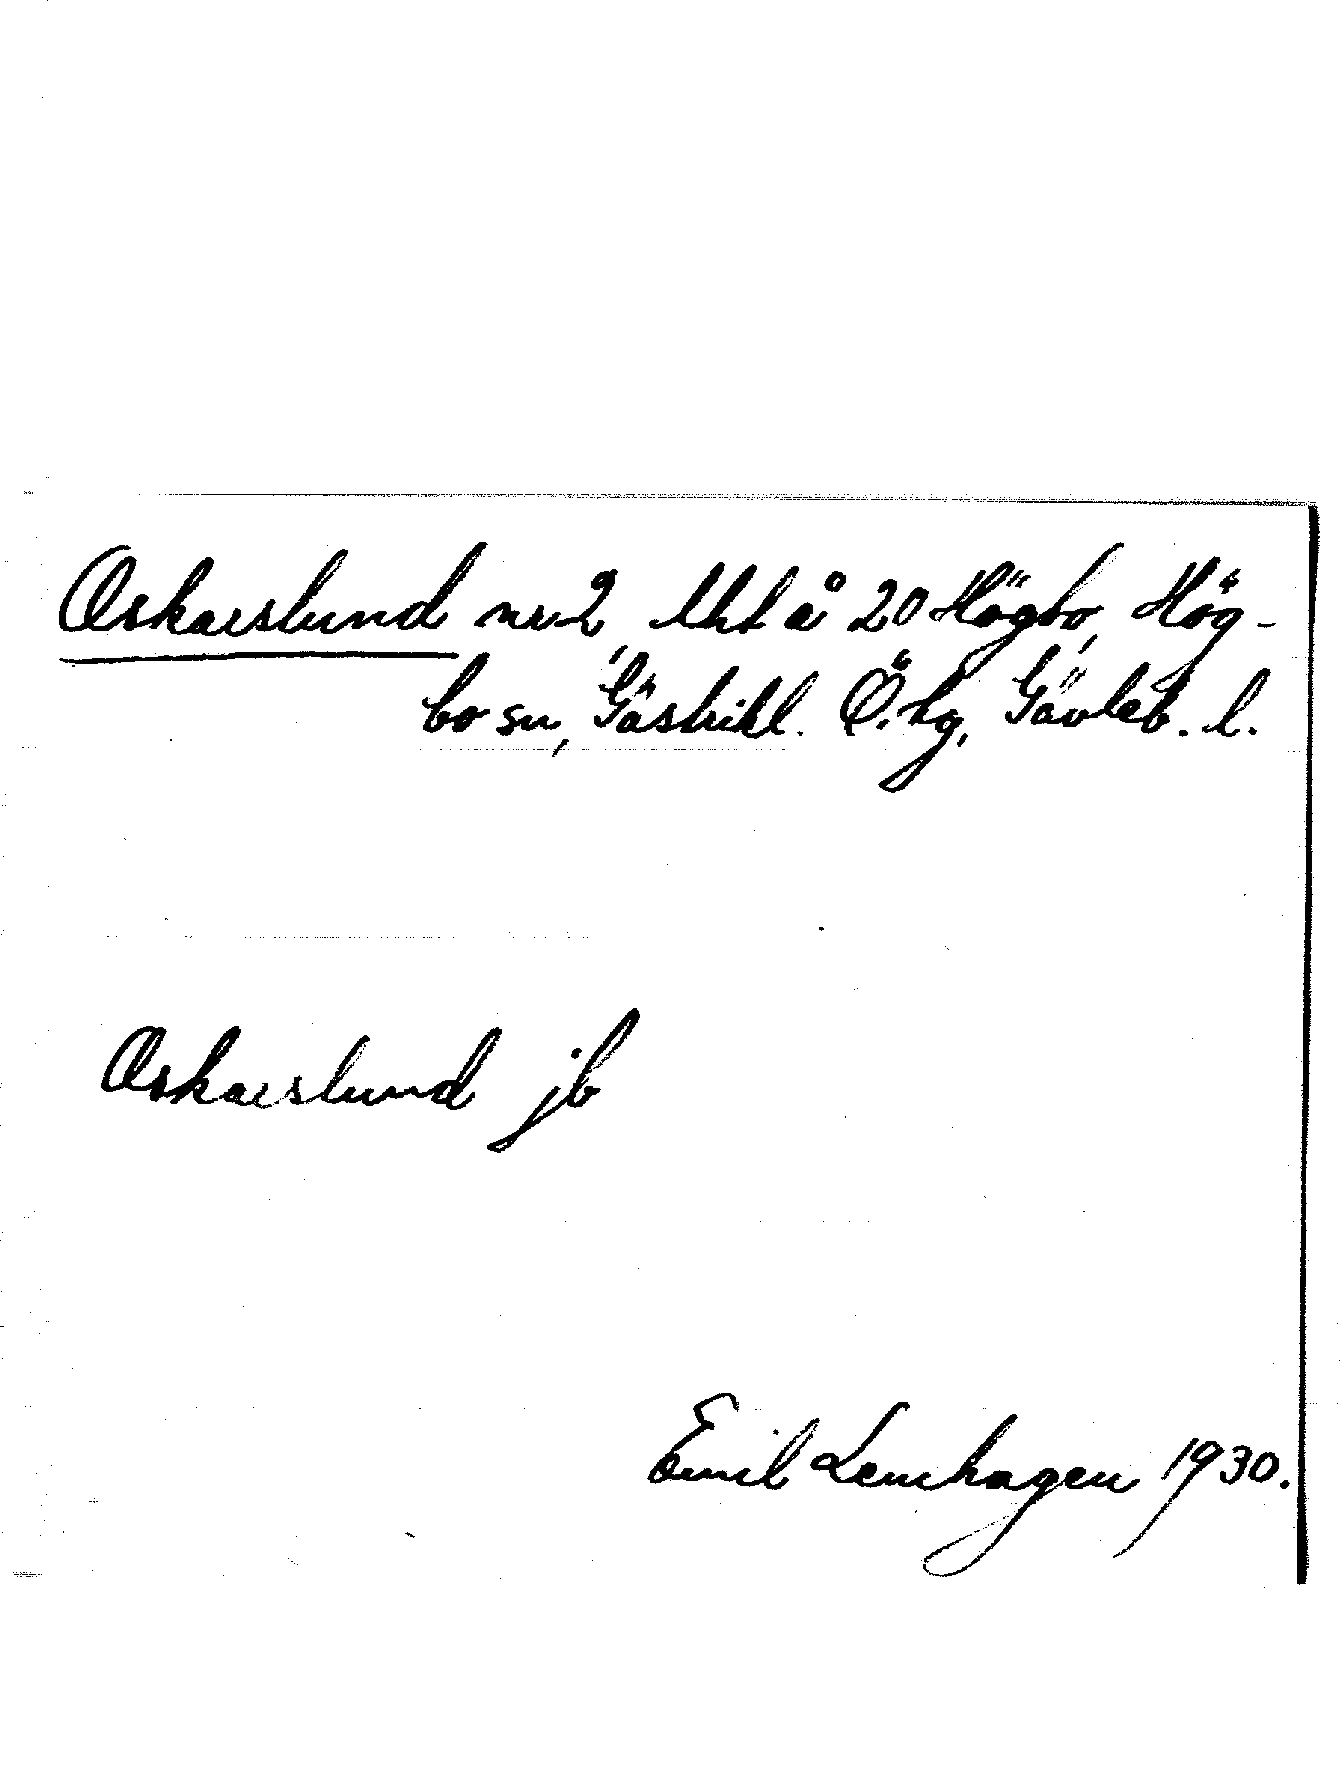 Oskarslund nr 2, lht å 20 Högbo, Hög-
bo sn, Gästrikl. Ö. hg, Gävleb. l.
Oskarslund jb
Emil Lemhagen 1930.